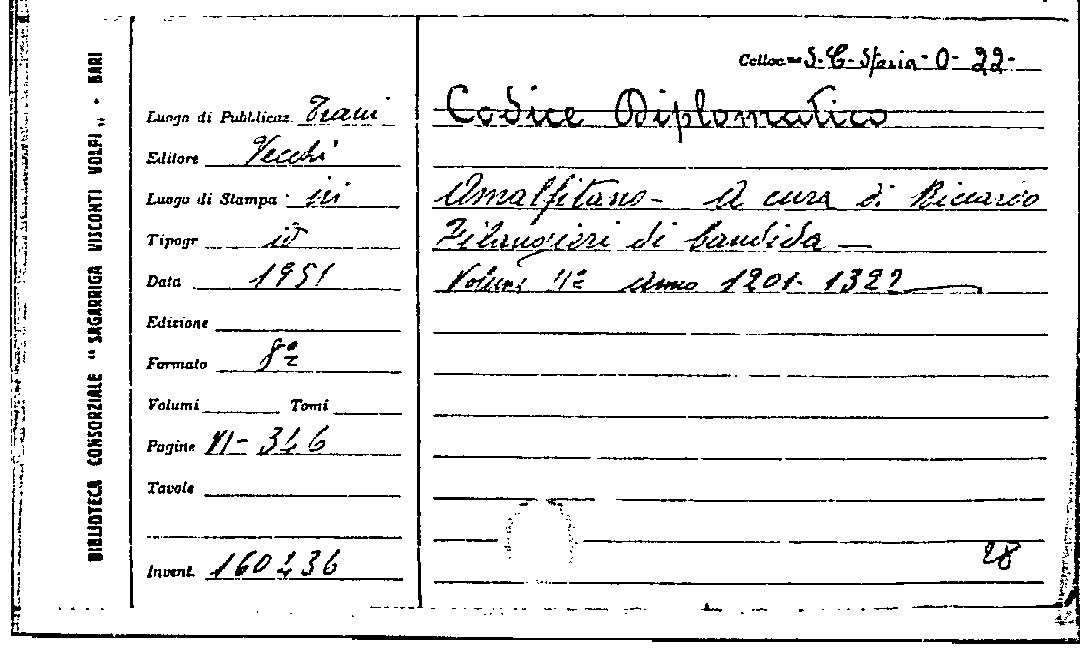 BIBLIOTECA CONSORZIALE " SAGARRIGA VISCONTI VOLPI „ - BARI
Colloc. S.C. Storia - O - 22 -
Luogo di Pubblicaz. Trani
Editore Vecchi
Luogo di Stampa ivi
Tipogr id
Data 1951
Edizione
Formato 8°
Volumi Tomi
Pagine VI - 346
Tavole
Invent. 160236
Codice Diplomatico
Amalfitano - A cura di Riccardo
Filangieri di Candida —
Volume II° Anno 1201 - 1322
28